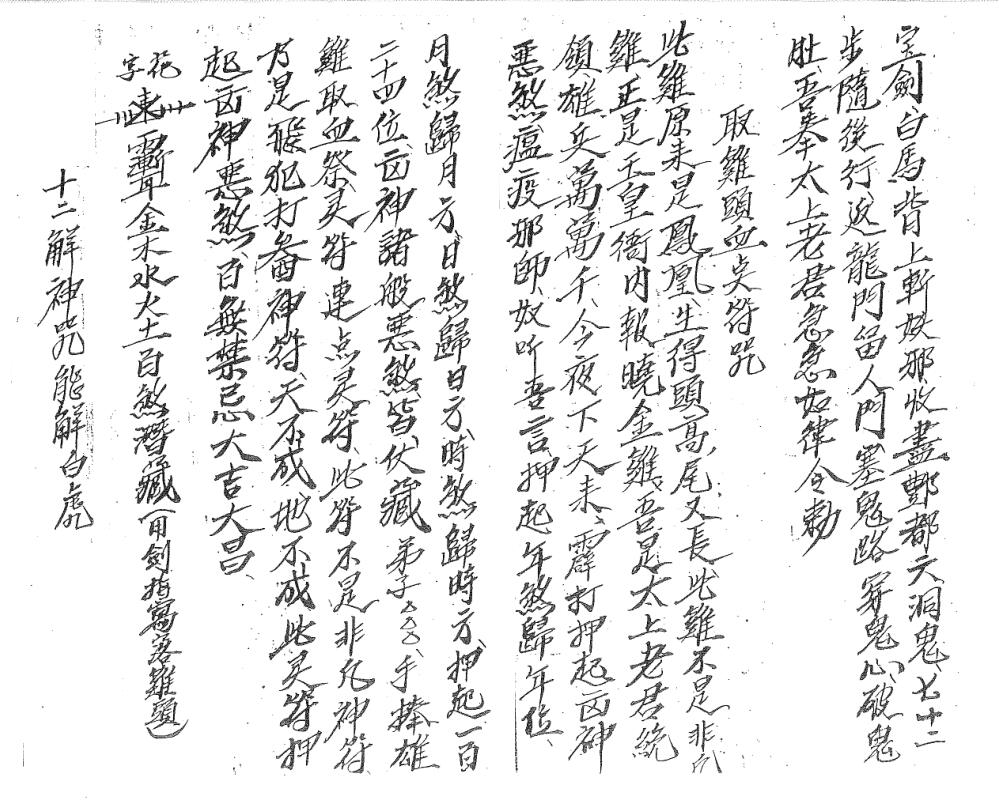 宝劍、白馬背上斬妖邪、收盡酆都六洞鬼、七十二
步隨後行、返龍門留人門塞鬼路穿鬼心破鬼
肚、吾奉太上老君急急如律令勅
取雞頭血点符咒
此雞原来是鳳凰生得頭高尾又長、此雞不是非凡
雞正是玉皇衙内報曉金雞、吾是太上老君統
領雄兵萬萬千、今夜下天来、霹打押起凶神
惡煞、瘟疫邪師、奴听吾言、押起年煞歸年位、
月煞歸月方、日煞歸日方、時煞歸時方、押起一百
二十四位、凶神諸般惡煞皆伏藏 弟子△△△、手捧雄
雞取血祭灵符連点灵符、此符不是非凡神符、
乃是 犯打 神符、天不成、地不成此灵符押
起凶神惡煞、百無禁忌大吉大昌、
花字 金木水火土百煞潛藏 用劍指寫落雞頭
十二解神咒能解白虎